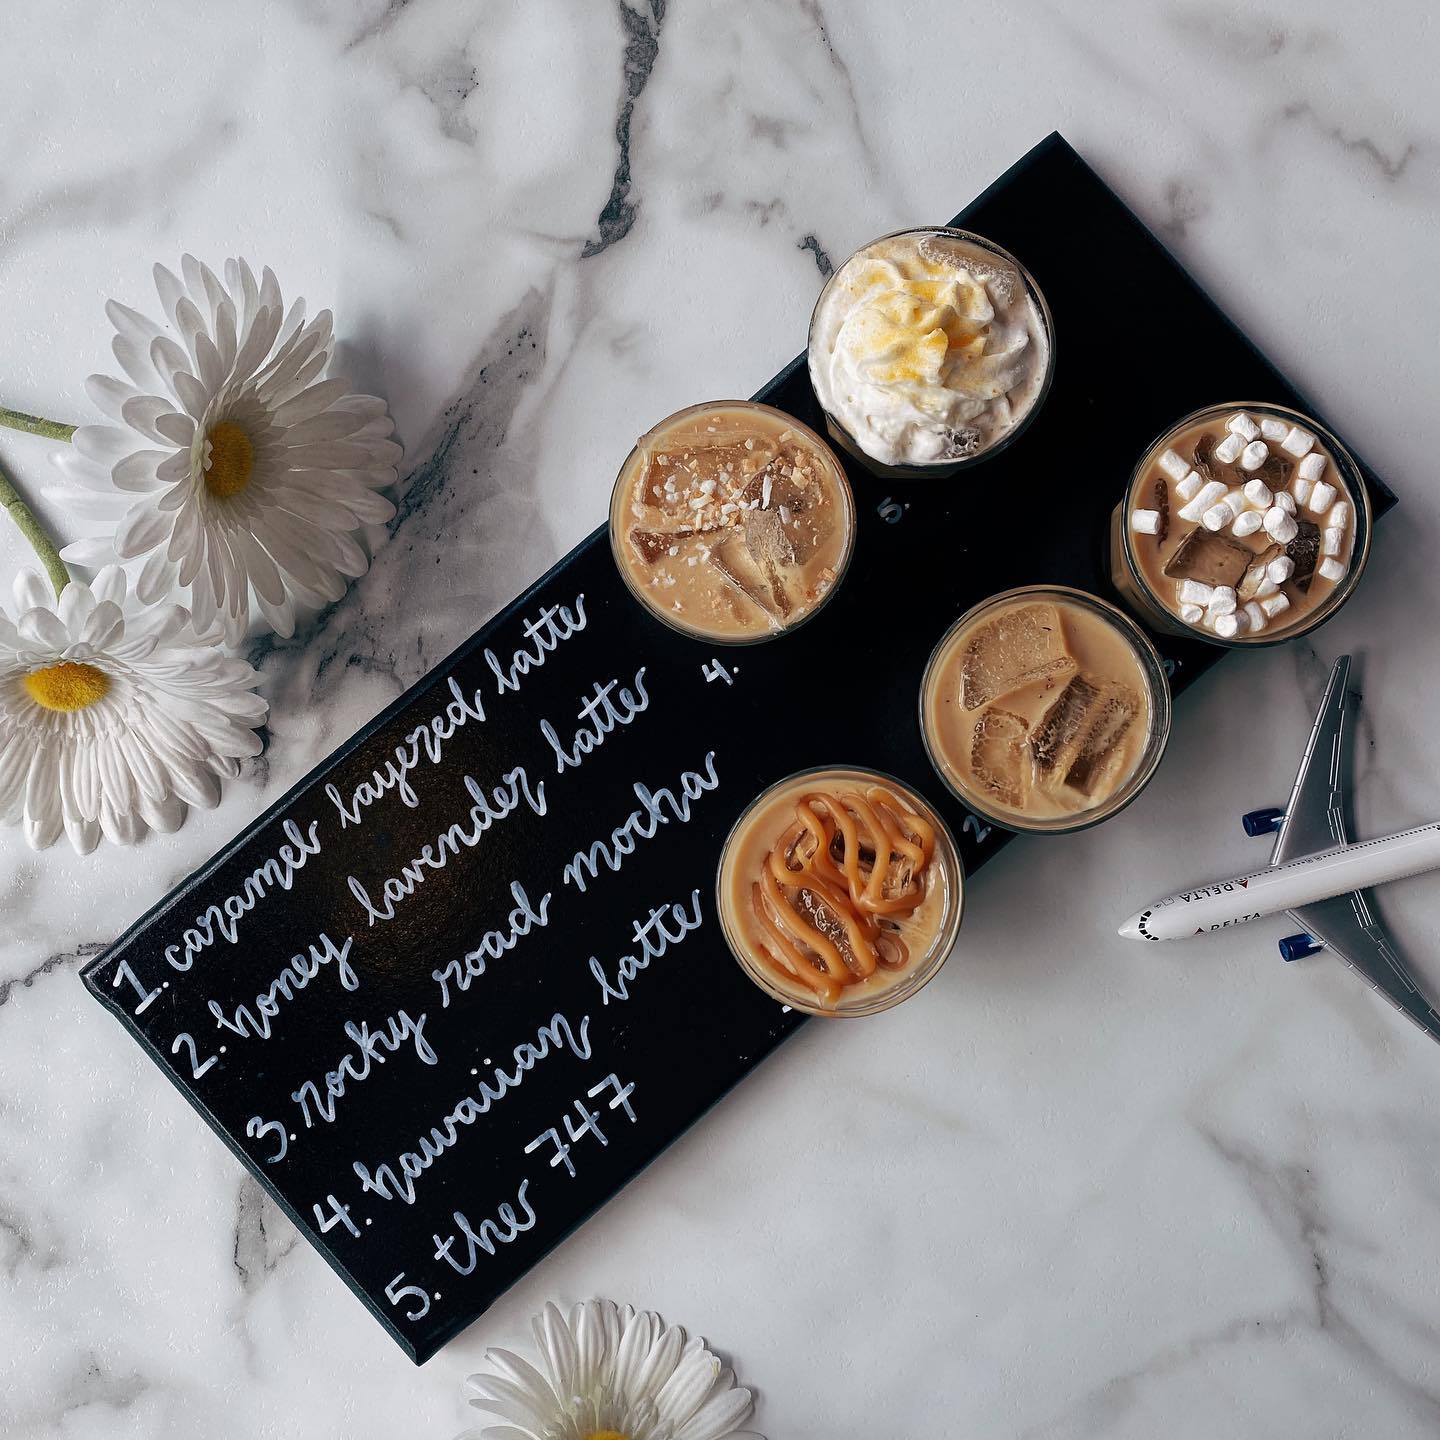 1. caramel layered latte
2. honey lavender latte
3. rocky road mocha
4. hawaiian latte
5. the 747
4.
5.
2.
DELTA
DELTA